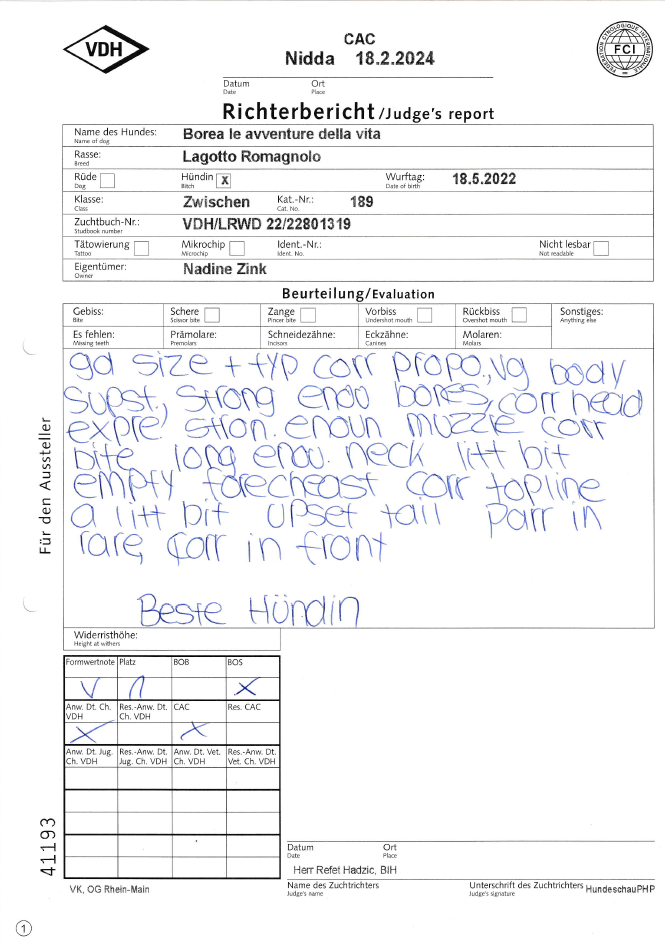 VDH
CAC
Nidda 18.2.2024
FEDERATION CYNOLOGIQUE INTERNATIONALE
FCI
Datum Ort
Date Place
Richterbericht /Judge's report
Name des Hundes: Borea le avventure della vita
Name of dog
Rasse: Lagotto Romagnolo
Breed
Rüde Hündin X Wurftag: 18.5.2022
Dog Bitch Date of birth
Klasse: Zwischen Kat.-Nr.: 189
Class Cat. No.
Zuchtbuch-Nr.: VDH/LRWD 22/22801319
Studbook number
Tätowierung Mikrochip Ident.-Nr.: Nicht lesbar
Tattoo Microchip Ident. No. Not readable
Eigentümer: Nadine Zink
Owner
Beurteilung/Evaluation
Gebiss: Schere Zange Vorbiss Rückbiss Sonstiges:
Bite Scissor bite Pincer bite Undershot mouth Overshot mouth Anything else
Es fehlen: Prämolare: Schneidezähne: Eckzähne: Molaren:
Missing teeth Premolars Incisors Canines Molars
gd size + typ corr propo., vg body
supst., strong enou bones, corr head
expre stron. enoun muzzle corr
bite long enou. neck litt bit
empty forecheast corr topline
a litt bit upset tail parr in
rare, corr in front
Beste Hündin
Für den Aussteller
Widerristhöhe:
Height at withers
Formwertnote Platz BOB BOS
V 1 X
Anw. Dt. Ch. VDH Res.-Anw. Dt. Ch. VDH CAC Res. CAC
X X
Anw. Dt. Jug. Ch. VDH Res.-Anw. Dt. Jug. Ch. VDH Anw. Dt. Vet. Ch. VDH Res.-Anw. Dt. Vet. Ch. VDH
41193
Datum Ort
Date Place
Herr Refet Hadzic, BIH
VK, OG Rhein-Main
Name des Zuchtrichters Unterschrift des Zuchtrichters HundeschauPHP
Judge's name Judge's signature
1